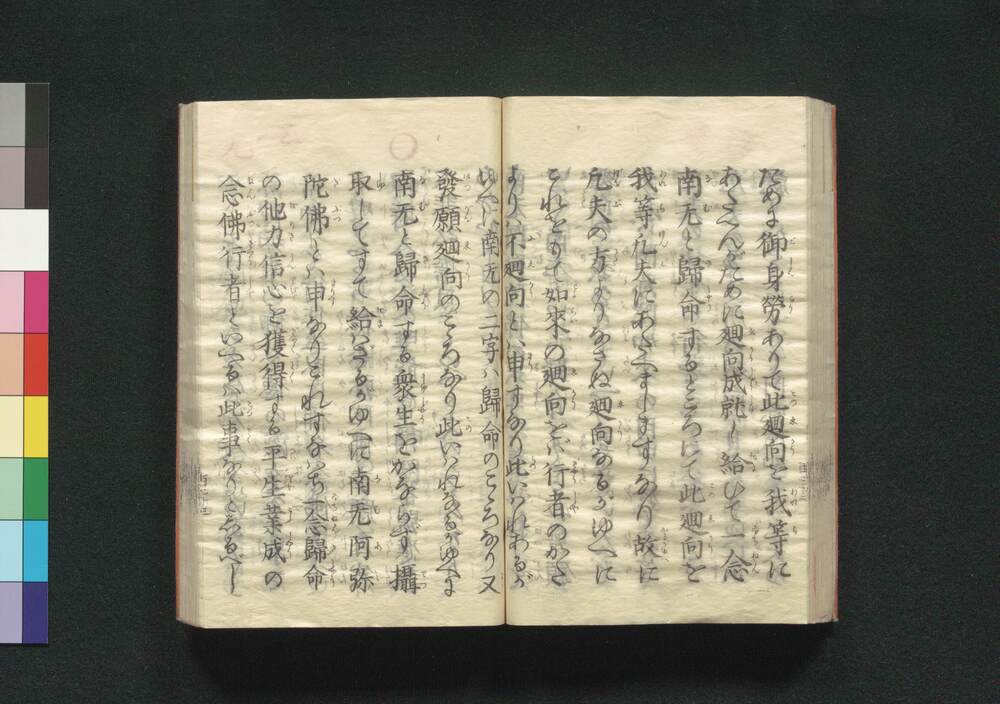 ために御身労ありて此廻向を我等に
あたへんがために廻向成就し給ひて一念
南无と歸命するところにて此廻向を
我等凡夫にあたへましますなり故に
凡夫の方よりなさぬ廻向なるがゆへに
これをもて如來の廻向をバ行者のかた
よりハ不廻向とハ申すなり此いはれあるが
ゆへに南无の二字ハ歸命のこゝろなり又
發願廻向のこゝろなり此いはれなるがゆへに
南无と歸命する衆生をかならず攝
取してすて給はざるがゆへに南无阿弥
陀佛とハ申なりこれすなはち一念歸命
の他力信心を獲得する平生業成の
念佛行者といへるハ此事なりとしるべし